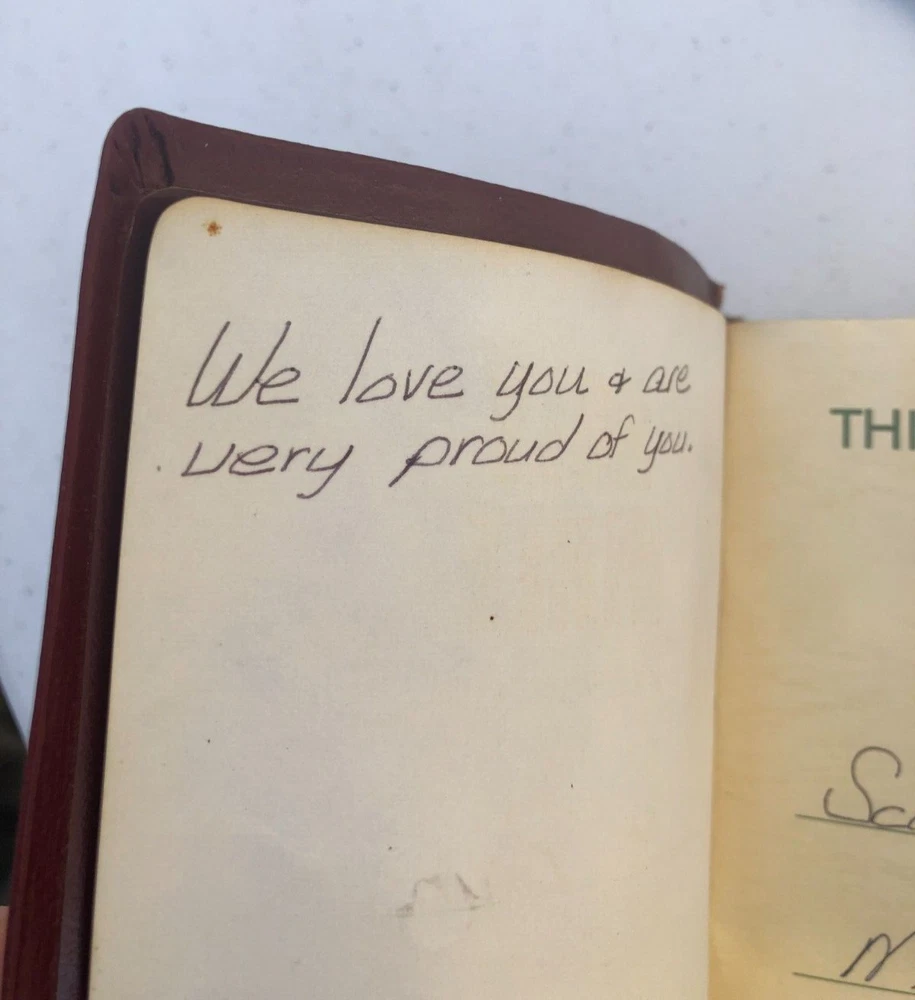 We love you & are
very proud of you.